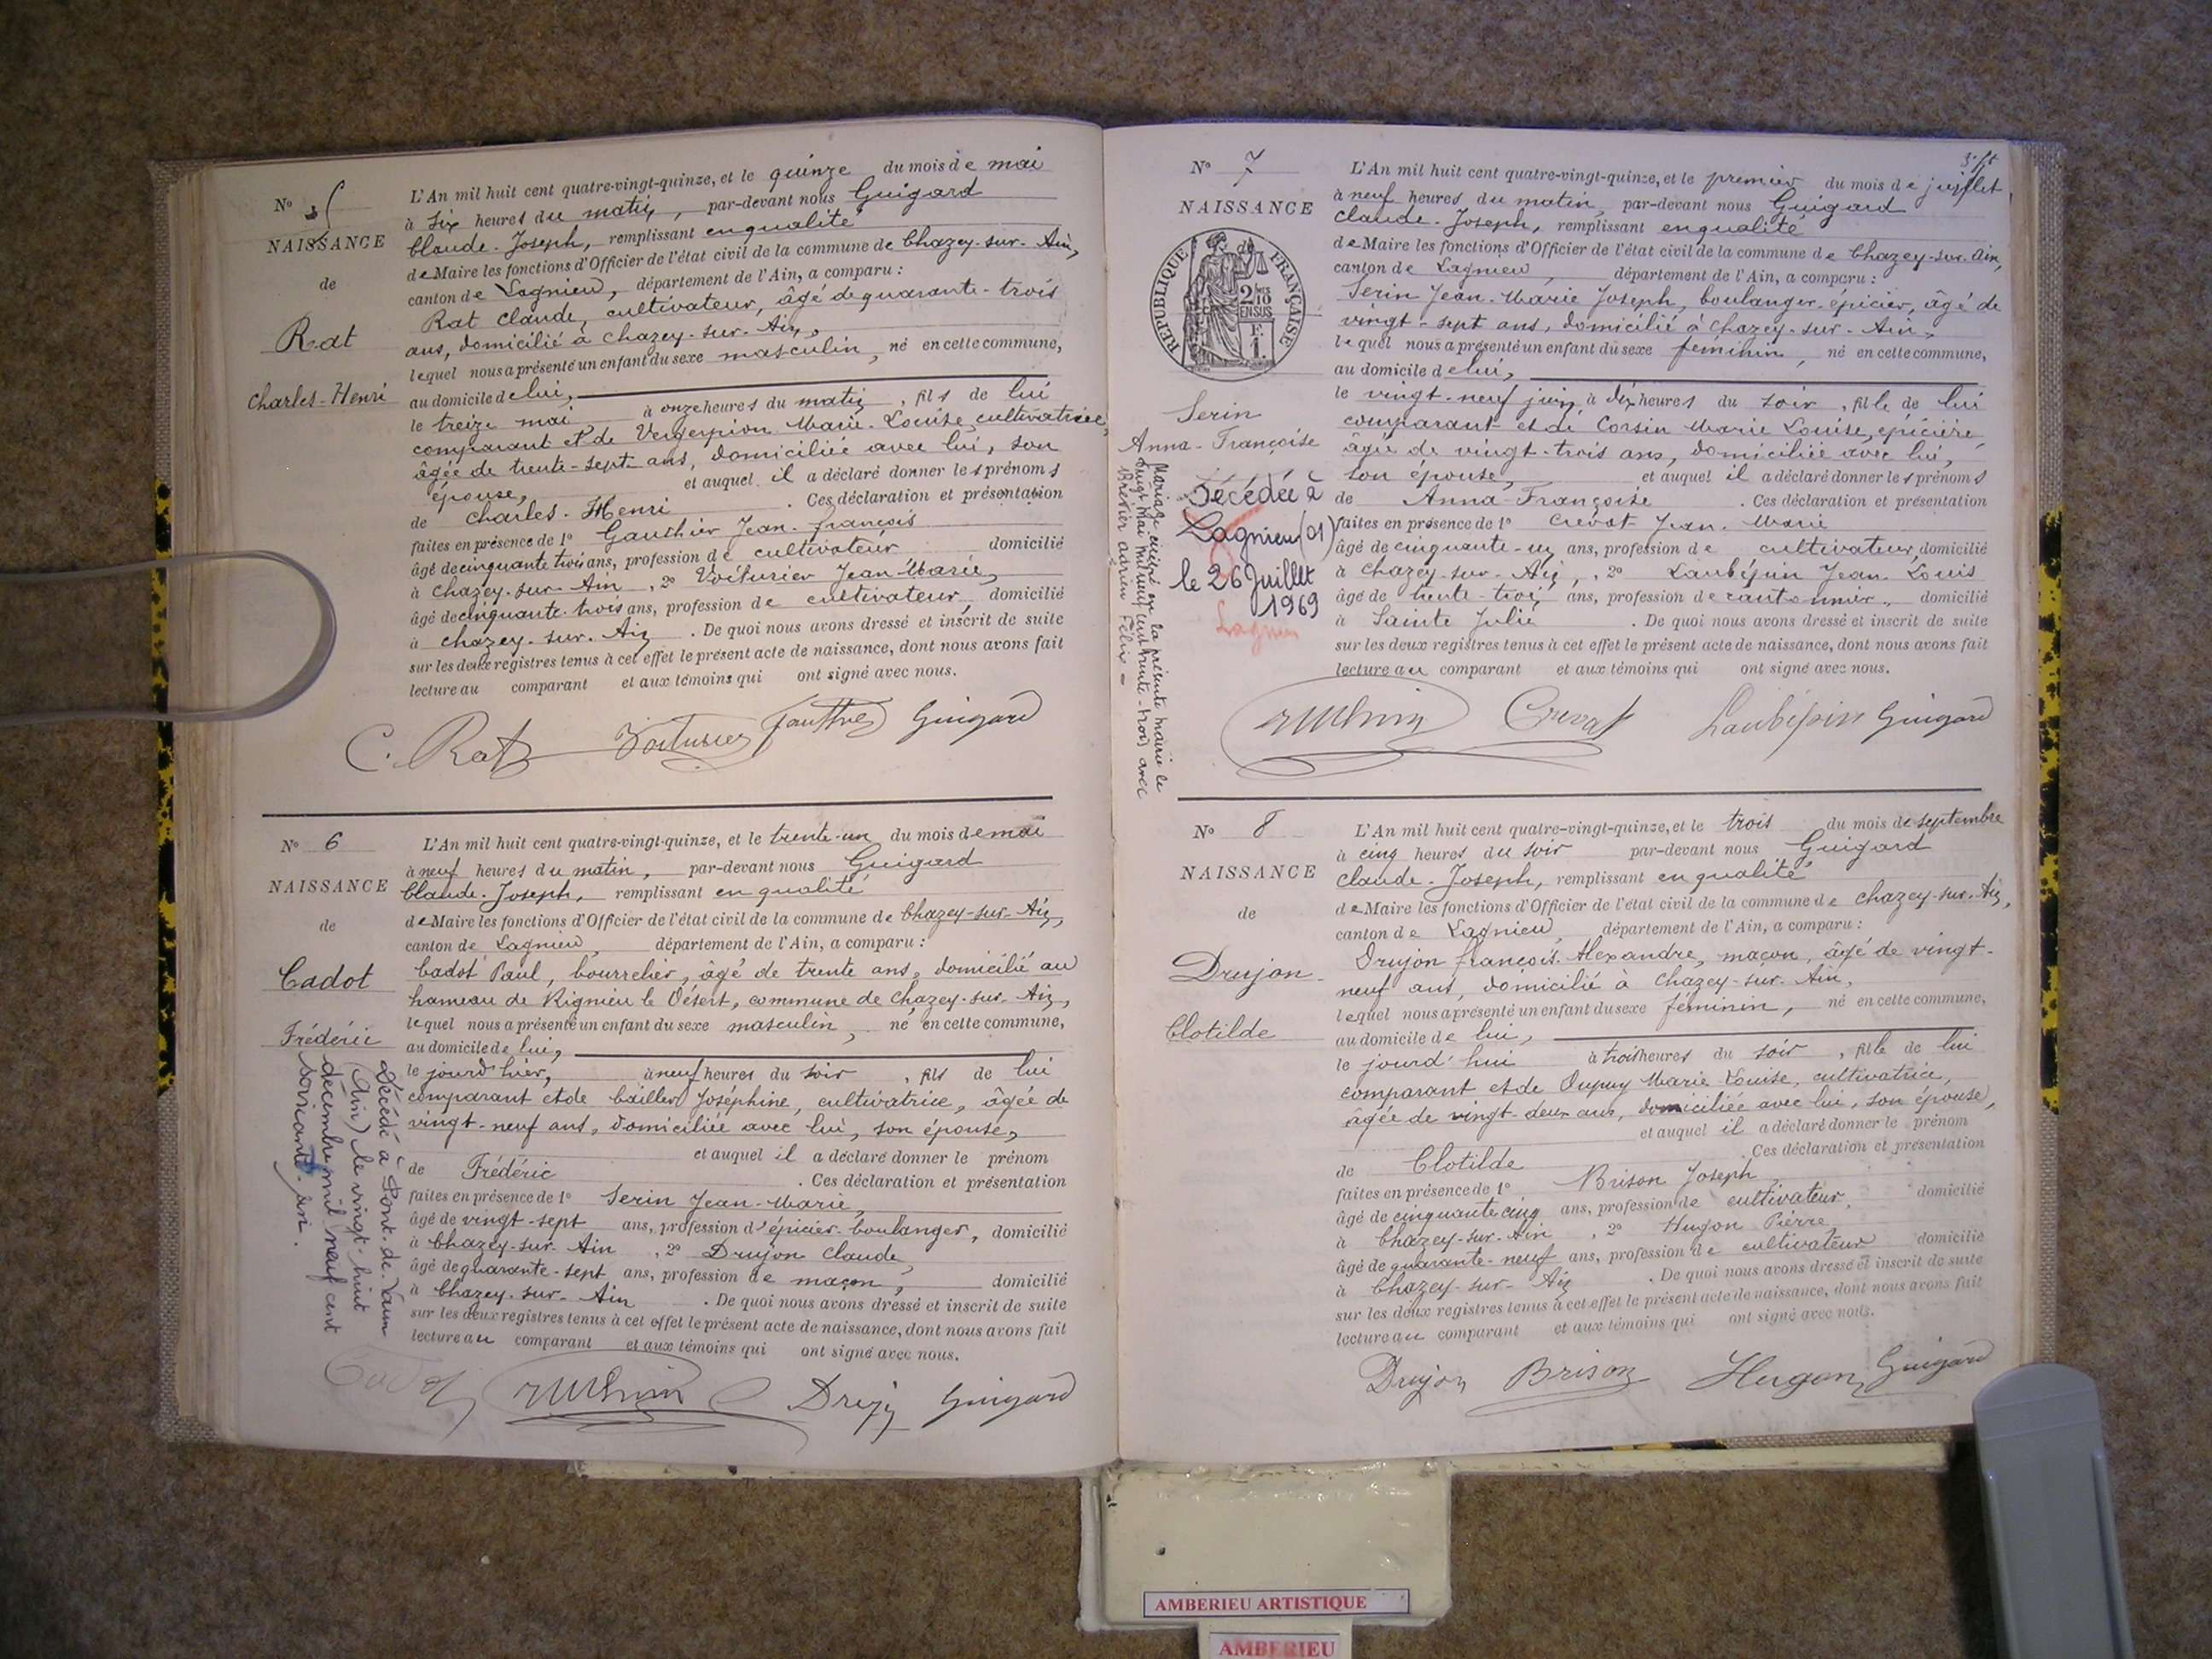 N° 5
NAISSANCE
de
Rat
Charles-Henri
L'An mil huit cent quatre-vingt-quinze, et le quinze du mois de mai
à six heures du matin, par-devant nous Guigard
Claude-Joseph, remplissant en qualité
de Maire les fonctions d'Officier de l'état civil de la commune de Chazey-sur-Ain,
canton de Lagnieu, département de l'Ain, a comparu :
Rat Claude, cultivateur, âgé de quarante-trois
ans, domicilié à Chazey-sur-Ain,
lequel nous a présenté un enfant du sexe masculin, né en cette commune,
au domicile de lui,
le treize mai à onze heures du matin, fils de lui
comparant et de Marie-Louise, cultivatrice,
âgée de trente-sept ans, domiciliée avec lui, son
épouse, et auquel il a déclaré donner les prénoms
de Charles-Henri. Ces déclaration et présentation
faites en présence de 1° Gauthier Jean-François
âgé de cinquante trois ans, profession de cultivateur domicilié
à Chazey-sur-Ain, 2° Voiturier Jean-Marie,
âgé de cinquante-trois ans, profession de cultivateur, domicilié
à Chazey-sur-Ain. De quoi nous avons dressé et inscrit de suite
sur les deux registres tenus à cet effet le présent acte de naissance, dont nous avons fait
lecture au comparant et aux témoins qui ont signé avec nous.
C. Rat Voiturier Gauthier Guigard
N° 6
NAISSANCE
de
Cadot
Frédéric
Décédé à Pont-de-Vaux
(Ain) le vingt-huit
décembre mil neuf cent
soixante-
L'An mil huit cent quatre-vingt-quinze, et le trente-un du mois de mai
à neuf heures du matin, par-devant nous Guigard
Claude-Joseph, remplissant en qualité
de Maire les fonctions d'Officier de l'état civil de la commune de Chazey-sur-Ain,
canton de Lagnieu, département de l'Ain, a comparu :
Cadot Paul, bourrelier, âgé de trente ans, domicilié au
hameau de Rignieu le Désert, commune de Chazey-sur-Ain,
lequel nous a présenté un enfant du sexe masculin, né en cette commune,
au domicile de lui,
le jourd'hier, à neuf heures du soir, fils de lui
comparant et de Joséphine, cultivatrice, âgée de
vingt-neuf ans, domiciliée avec lui, son épouse,
et auquel il a déclaré donner le prénom
de Frédéric. Ces déclaration et présentation
faites en présence de 1° Serin Jean-Marie,
âgé de vingt-sept ans, profession d'épicier-boulanger, domicilié
à Chazey-sur-Ain, 2° Drujon Claude,
âgé de quarante-sept ans, profession de maçon, domicilié
à Chazey-sur-Ain. De quoi nous avons dressé et inscrit de suite
sur les deux registres tenus à cet effet le présent acte de naissance, dont nous avons fait
lecture au comparant et aux témoins qui ont signé avec nous.
Cadot Drujon Guigard
N° 7
NAISSANCE
RÉPUBLIQUE FRANÇAISE
2/10 EN SUS
F. 1.
Serin
Anna-Françoise
Décédée à
Lagnieu (01)
le 26 Juillet
1969
Lagnieu
Mariage célébré en la présente mairie le
vingt mai mil neuf cent trente-trois avec
Adrien Félix
L'An mil huit cent quatre-vingt-quinze, et le premier du mois de juillet,
à neuf heures du matin, par-devant nous Guigard
Claude-Joseph, remplissant en qualité
de Maire les fonctions d'Officier de l'état civil de la commune de Chazey-sur-Ain,
canton de Lagnieu, département de l'Ain, a comparu :
Serin Jean-Marie Joseph, boulanger-épicier, âgé de
vingt-sept ans, domicilié à Chazey-sur-Ain,
lequel nous a présenté un enfant du sexe féminin, né en cette commune,
au domicile de lui,
le vingt-neuf juin, à dix heures du soir, fille de lui
comparant et de Corsin Marie Louise, épicière,
âgée de vingt-trois ans, domiciliée avec lui,
son épouse, et auquel il a déclaré donner les prénoms
de Anna-Françoise. Ces déclaration et présentation
faites en présence de 1° Crevat Jean-Marie
âgé de cinquante-un ans, profession de cultivateur, domicilié
à Chazey-sur-Ain, 2° Laubépin Jean-Louis
âgé de trente-trois ans, profession de cantonnier, domicilié
à Sainte Julie. De quoi nous avons dressé et inscrit de suite
sur les deux registres tenus à cet effet le présent acte de naissance, dont nous avons fait
lecture au comparant et aux témoins qui ont signé avec nous.
Crevat Laubépin Guigard
N° 8
NAISSANCE
de
Drujon
Clotilde
L'An mil huit cent quatre-vingt-quinze, et le trois du mois de septembre
à cinq heures du soir par-devant nous Guigard
Claude-Joseph, remplissant en qualité
de Maire les fonctions d'Officier de l'état civil de la commune de Chazey-sur-Ain,
canton de Lagnieu, département de l'Ain, a comparu :
Drujon François-Alexandre, maçon, âgé de vingt-
neuf ans, domicilié à Chazey-sur-Ain,
lequel nous a présenté un enfant du sexe féminin, né en cette commune,
au domicile de lui,
le jourd'hui à trois heures du soir, fille de lui
comparant et de Dupuy Marie Louise, cultivatrice,
âgée de vingt-deux ans, domiciliée avec lui, son épouse,
et auquel il a déclaré donner le prénom
de Clotilde Ces déclaration et présentation
faites en présence de 1° Brison Joseph
âgé de cinquante cinq ans, profession de cultivateur, domicilié
à Chazey-sur-Ain, 2° Hugon Pierre
âgé de quarante-neuf ans, profession de cultivateur domicilié
à Chazey-sur-Ain. De quoi nous avons dressé et inscrit de suite
sur les deux registres tenus à cet effet le présent acte de naissance, dont nous avons fait
lecture au comparant et aux témoins qui ont signé avec nous.
Drujon Brison Hugon Guigard
AMBERIEU ARTISTIQUE
AMBERIEU